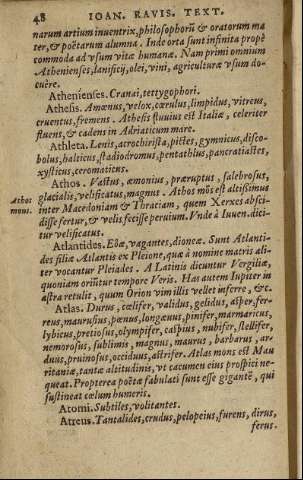 48 IOAN. RAVIS. TEXT.
narum artium inuentrix, philosophorũ & oratorum ma
ter, & poëtarum alumna. Inde orta sunt infinita propè
commoda ad vsum vitæ humanæ. Nam primi omnium
Athenienses, lanificij, olei, vini, agriculturæ vsum do-
cuêre.
Athenienses. Cranai, tettygophori.
Athesis. Amœnus, velox, cœrulus, limpidus, vitreus,
cruentus, fremens. Athesis fluuius est Italiæ, celeriter
fluens, & cadens in Adriaticum mare.
Athleta. Lenis, acrochirista, pictes, gymnicus, disco-
bolus, halticus, stadiodromus, pentathlus, pancratiastes,
xysticus, ceromaticus.
Athos. Vastus, æmonius, præruptus, salebrosus,
glacialis, velificatus, magnus. Athos mõs est altißimus
Athos mons.
inter Macedoniam & Thraciam, quem Xerxes absci-
disse fertur, & velis fecisse peruium. Vnde à Iuuen. dici-
tur velificatus.
Atlantides. Eöæ, vagantes, dioneæ. Sunt Atlanti-
des filiæ Atlantis ex Pleione, quæ à nomine matris ali-
ter vocantur Pleiades. A Latinis dicuntur Vergiliæ,
quoniam oriũtur tempore Veris. Has autem Iupiter in
astra retulit, quum Orion vim illis vellet inferre, &c.
Atlas. Durus, cœlifer, validus, gelidus, asper, fer-
reus, maurusius, pœnus, longæuus, pinifer, marmaricus,
lybicus, pretiosus, olympifer, caspius, nubifer, stellifer,
nemorosus, sublimis, magnus, maurus, barbarus, ar-
duus, pruinosus, occiduus, astrifer. Atlas mons est Mau
ritaniæ, tantæ altitudinis, vt cacumen eius prospici ne-
queat. Propterea poëtæ fabulati sunt esse gigantẽ, qui
sustineat cœlum humeris.
Atomi. Subtiles, volitantes.
Atreus. Tantalides, crudus, pelopeius, furens, dirus,
ferus.